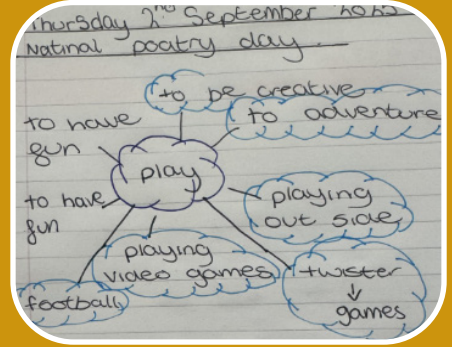 Thursday 2nd September
Natinal poatry day
to be creative
to adventure
to have
fun
play
to have
fun
playing
out side
playing
video games
twister
↓
games
football